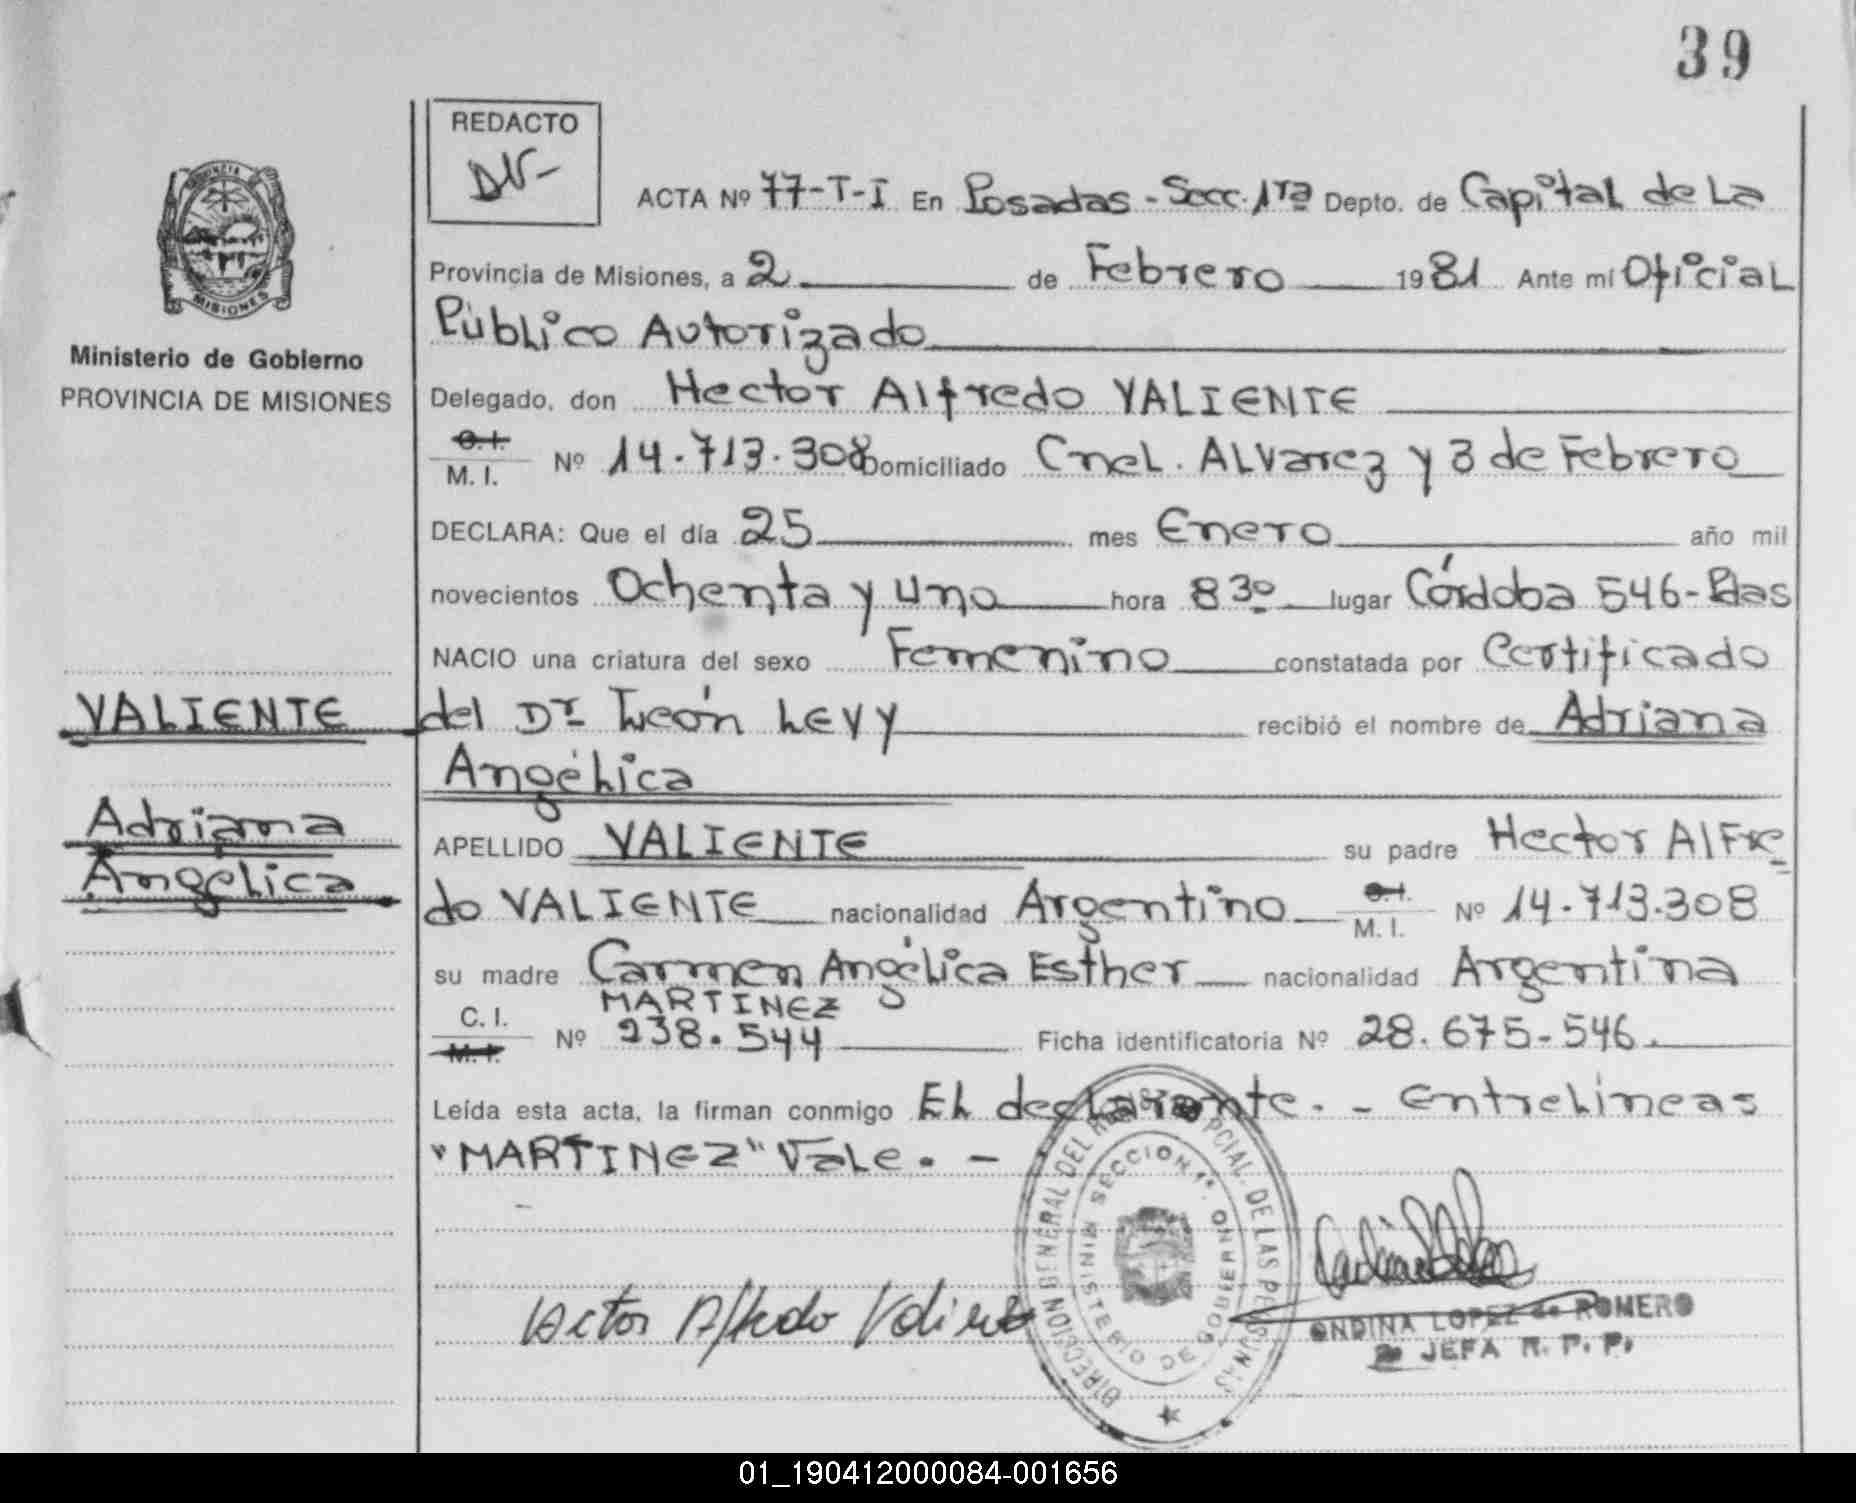 39
REDACTO
ACTA Nº 77-T-I En Posadas - Secc. 1ra Depto. de Capital de La
Provincia de Misiones, a 2 de Febrero 1981 Ante mí Oficial
Público Autorizado
Delegado, don Hector Alfredo VALIENTE
C.I. M.I. Nº 14.713.308 Domiciliado Cnel. Alvarez y 3 de Febrero
DECLARA: Que el día 25 mes Enero año mil
novecientos Ochenta y uno hora 8 30 lugar Córdoba 546- Pdas
NACIO una criatura del sexo Femenino constatada por Certificado
del Dr León LEVY recibió el nombre de Adriana
Angélica
APELLIDO VALIENTE su padre Hector Alfre
do VALIENTE nacionalidad Argentino C.I. M.I. Nº 14.713.308
su madre Carmen Angélica Esther nacionalidad Argentina
MARTINEZ
C.I. M.I. Nº 238.544 Ficha identificatoria Nº 28.675-546.
Leída esta acta, la firman conmigo El declarante. - Entrelineas
"MARTINEZ" Vale. -
Hector Alfredo Valiente
DIRECCION GENERAL DEL REGISTRO PCIAL. DE LAS PERSONAS
SECCION 1ª.
MINISTERIO DE GOBIERNO
ONDINA LOPEZ de ROMERO
JEFA R. P. P.
PROVINCIA
MISIONES
Ministerio de Gobierno
PROVINCIA DE MISIONES
VALIENTE
Adriana
Angélica
01_190412000084-001656